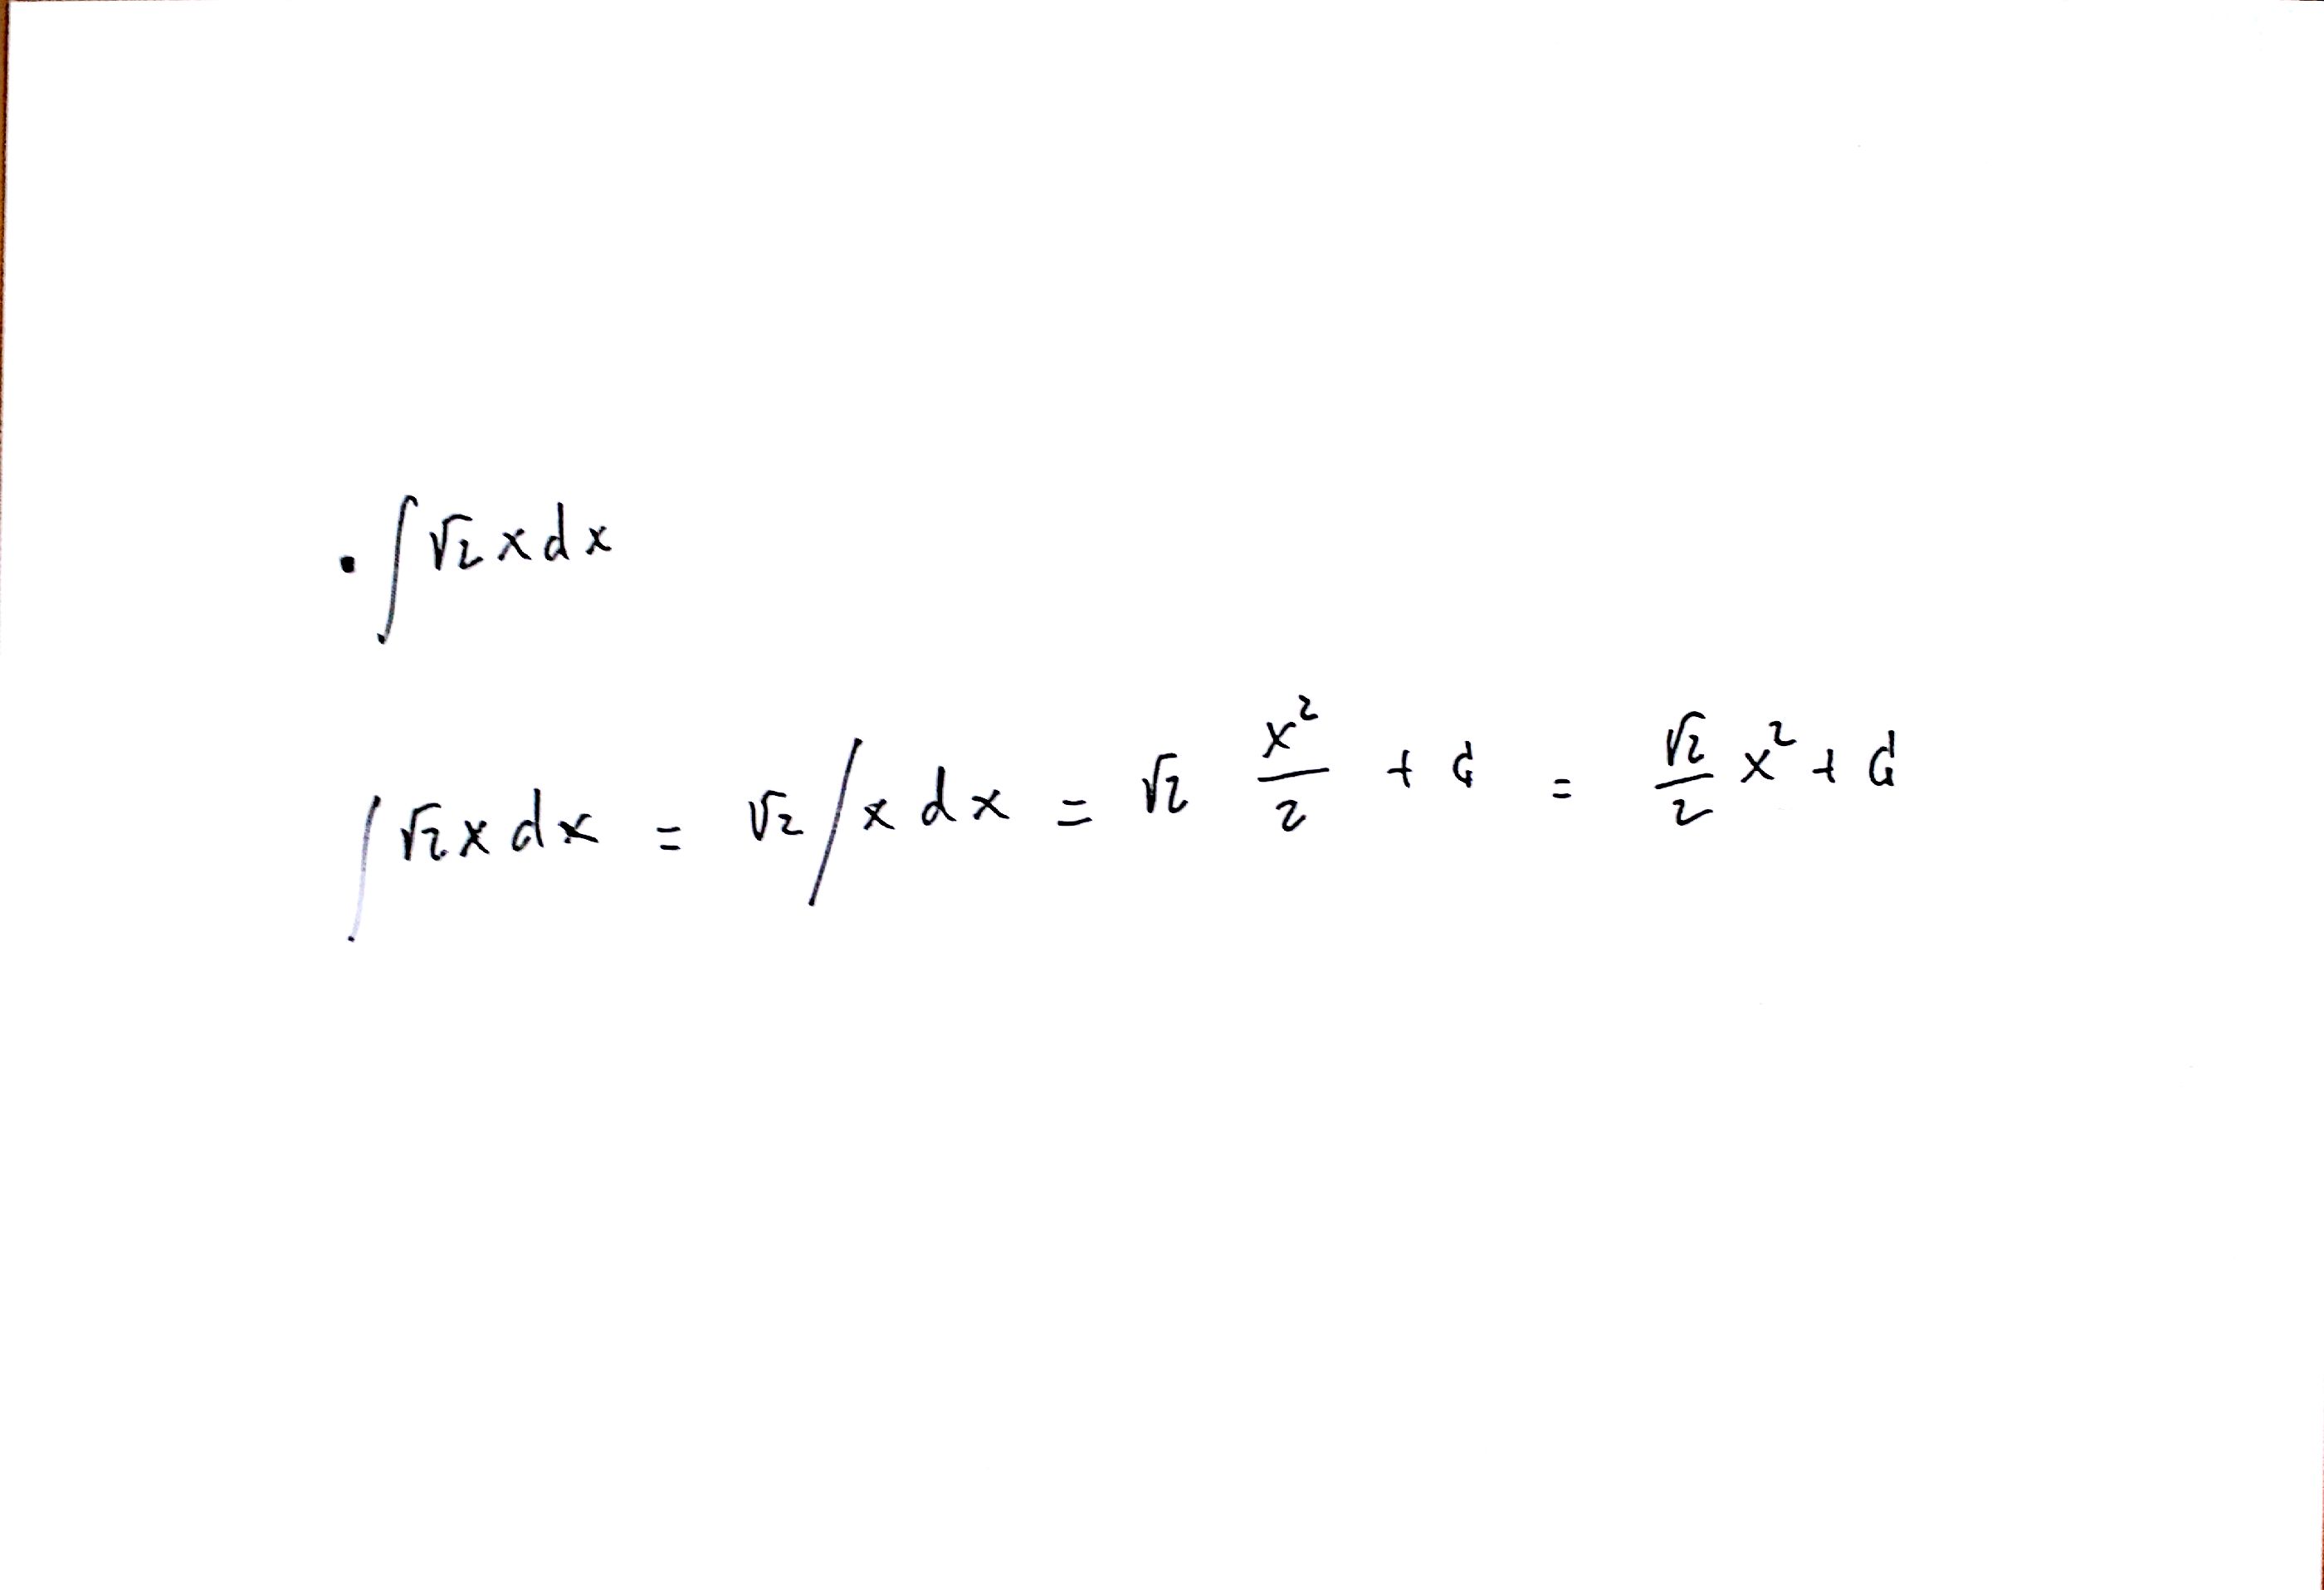 . ∫ √2 x dx
∫ √2 x dx = √2 ∫ x dx = √2 x²/2 + C = √2/2 x² + C